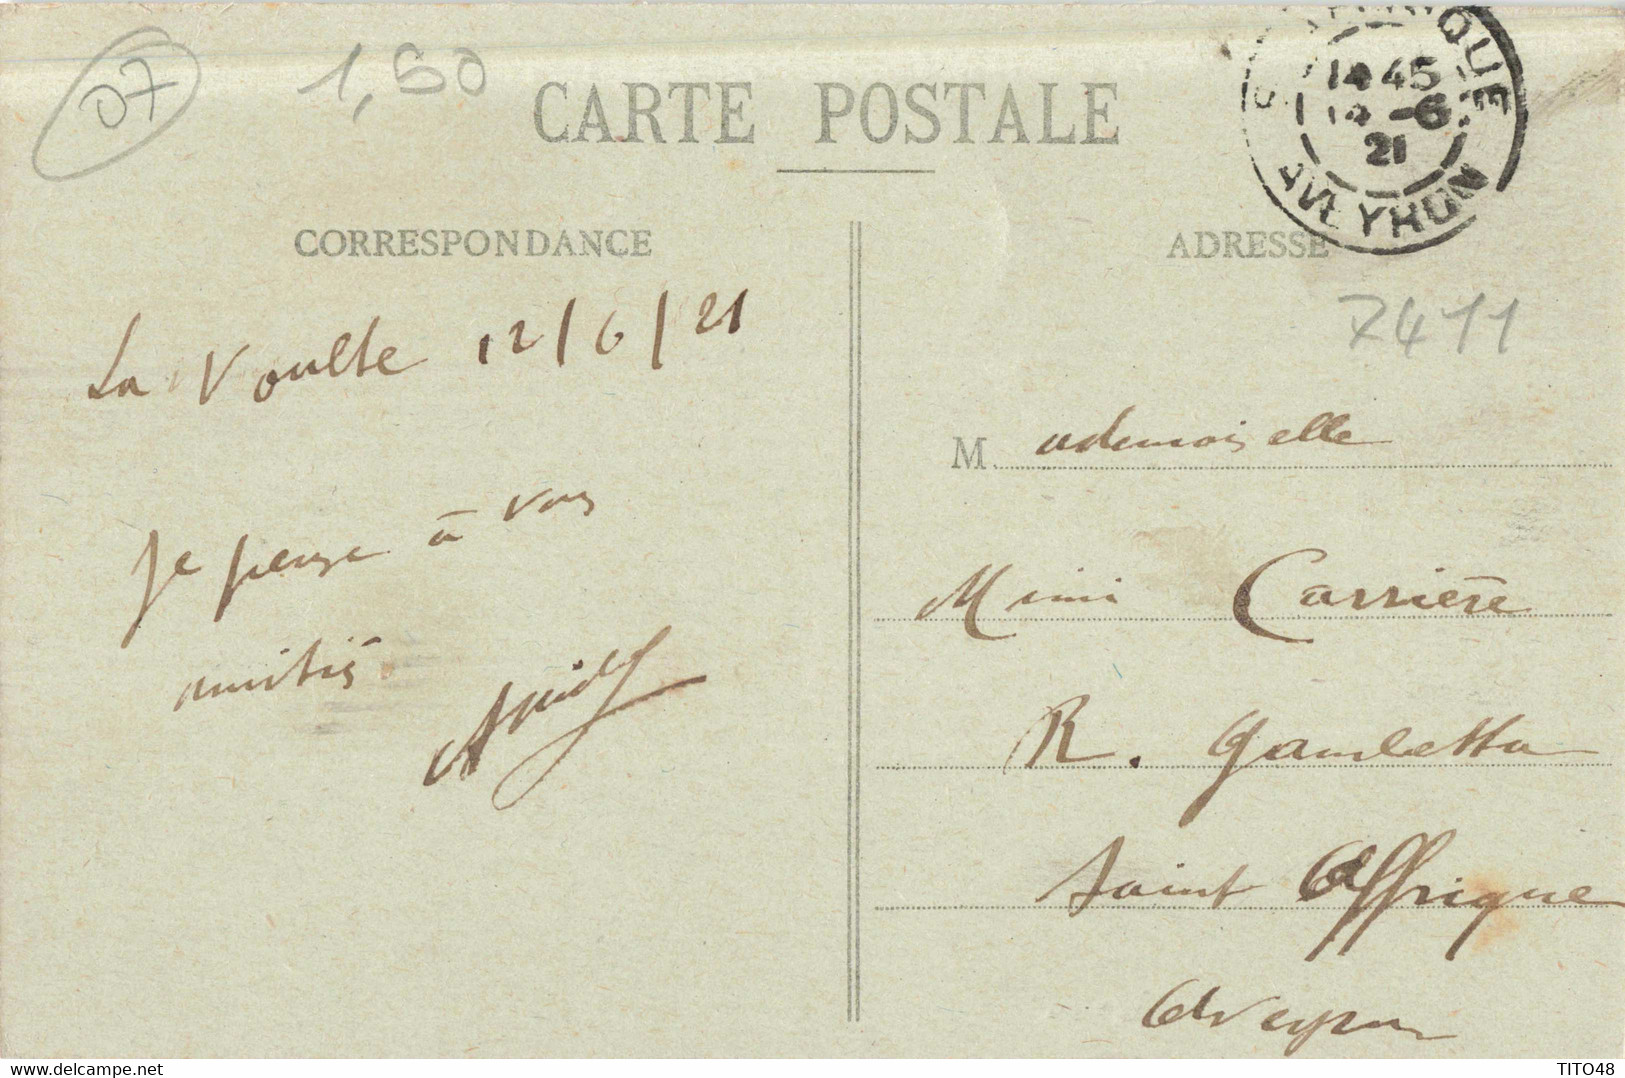 07
1,50
CARTE POSTALE
14 45
-6
21
AVEYRON
CORRESPONDANCE
ADRESSE
La Voulte 12/6/21
7411
Mademoiselle
Je pense à vous
Mimi Carrière
amitiés
R. Gambetta
Saint Affrique
Aveyron
TITO48